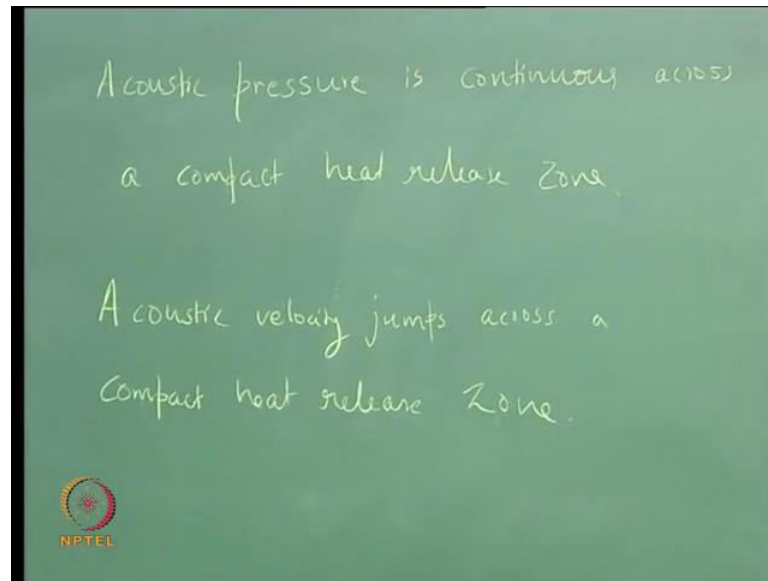 Acoustic pressure is continuous across
a compact heat release zone.
Acoustic velocity jumps across a
compact heat release zone.
NPTEL